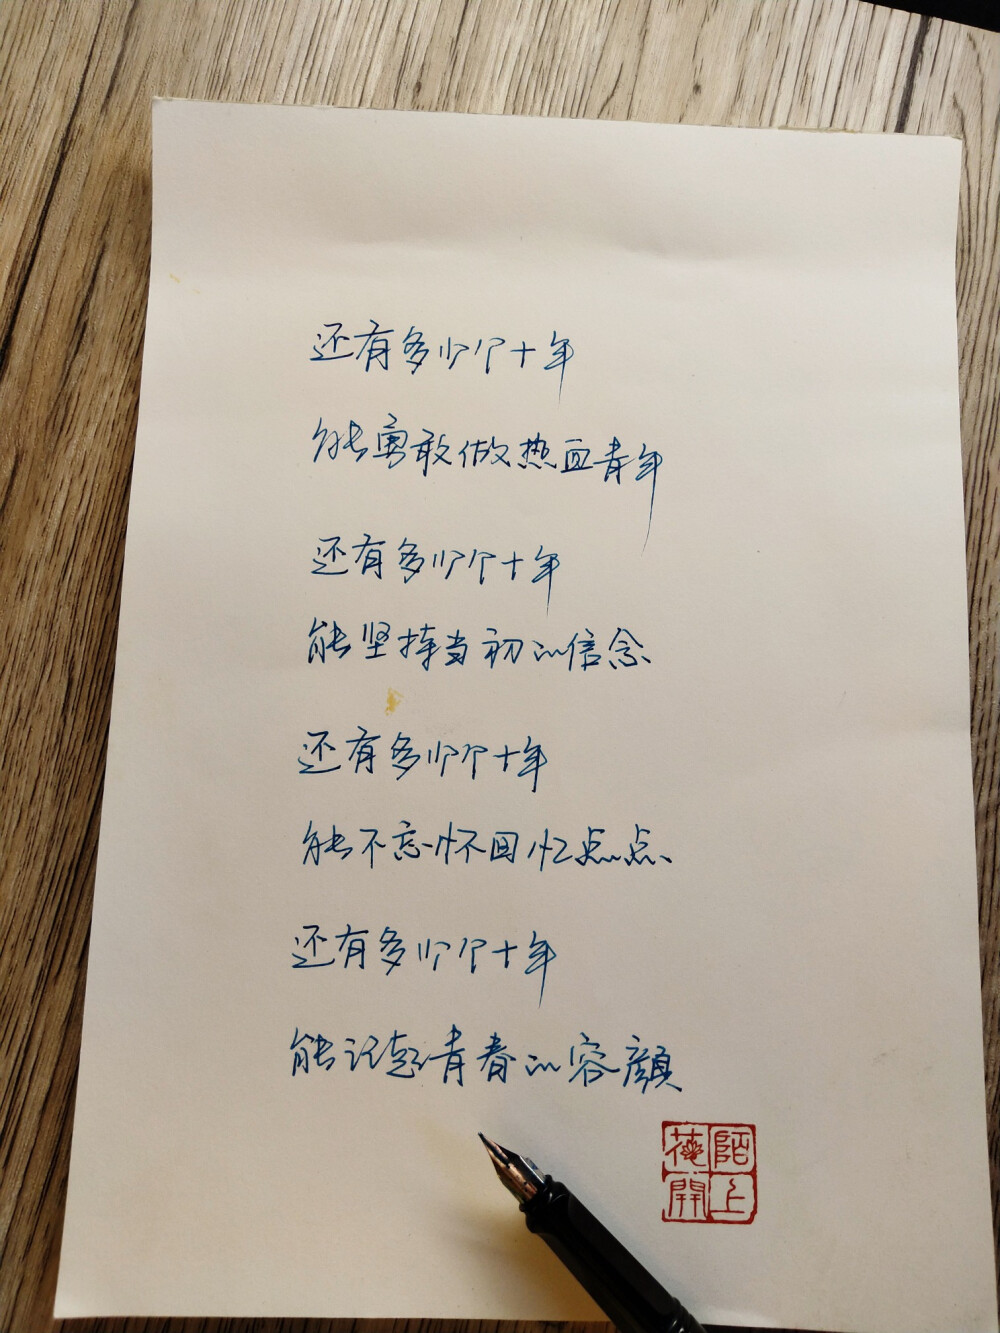 还有多少个十年
能勇敢做热血青年
还有多少个十年
能坚持当初的信念
还有多少个十年
能不忘怀回忆点点
还有多少个十年
能记起青春的容颜
陌上花開